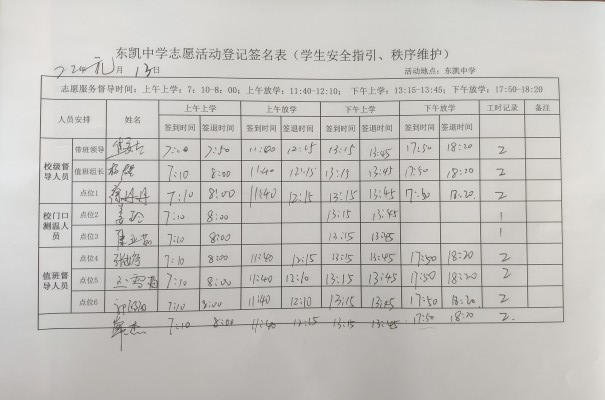 东凯中学志愿活动登记签名表（学生安全指引、秩序维护）
月13日 活动地点：东凯中学
志愿服务督导时间：上午上学：7：10-8：00；上午放学：11:40-12:10； 下午上学：13:15-13:45；下午放学：17:50-18:20
人员安排 姓名 上午上学 上午放学 下午上学 下午放学 工时记录 备注
签到时间 签退时间 签到时间 签退时间 签到时间 签退时间 签到时间 签退时间
校级督导人员 带班领导 7:50 12:15 13:15 13:45 17:50 18:20 2
值班组长 7:10 8:00 11:40 12:15 13:15 13:45 17:50 18:20 2
点位1 7:10 8:00 11:40 12:15 13:15 13:45 17:50 18:20 2
校门口测温人员 点位2 7:10 8:00 13:15 13:45 1
点位3 7:10 8:00 13:15 13:45 1
值班督导人员 点位4 7:10 8:00 11:40 12:15 13:15 13:45 17:50 18:20 2
点位5 7:10 8:00 11:40 12:10 13:15 13:45 17:50 18:20 2
点位6 7:10 8:00 11:40 12:10 13:15 13:45 17:50 18:20 2
7:10 8:00 11:40 12:15 13:15 13:45 17:50 18:20 2